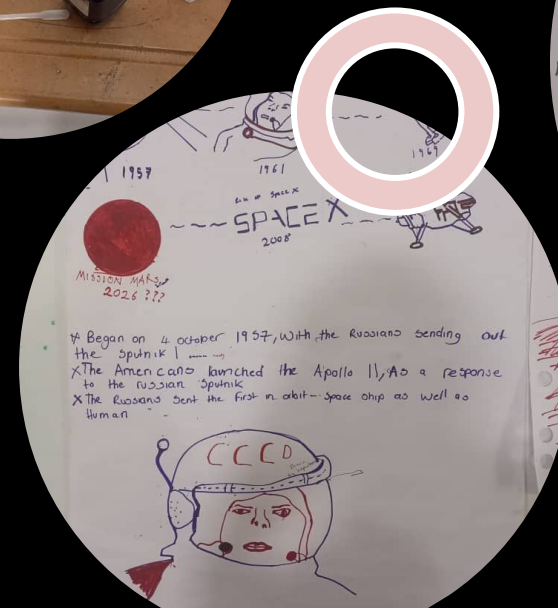 1957
1961
1969
SPACE X
2008
MISSION MARS
2026 ???
Began on 4 october 1957, With the Russians sending out
the Sputnik 1
X The Americans launched the Apollo 11, As a response
to the russian Sputnik
X The Russians Sent the First in orbit - Space ship as well as
Human
CCCD